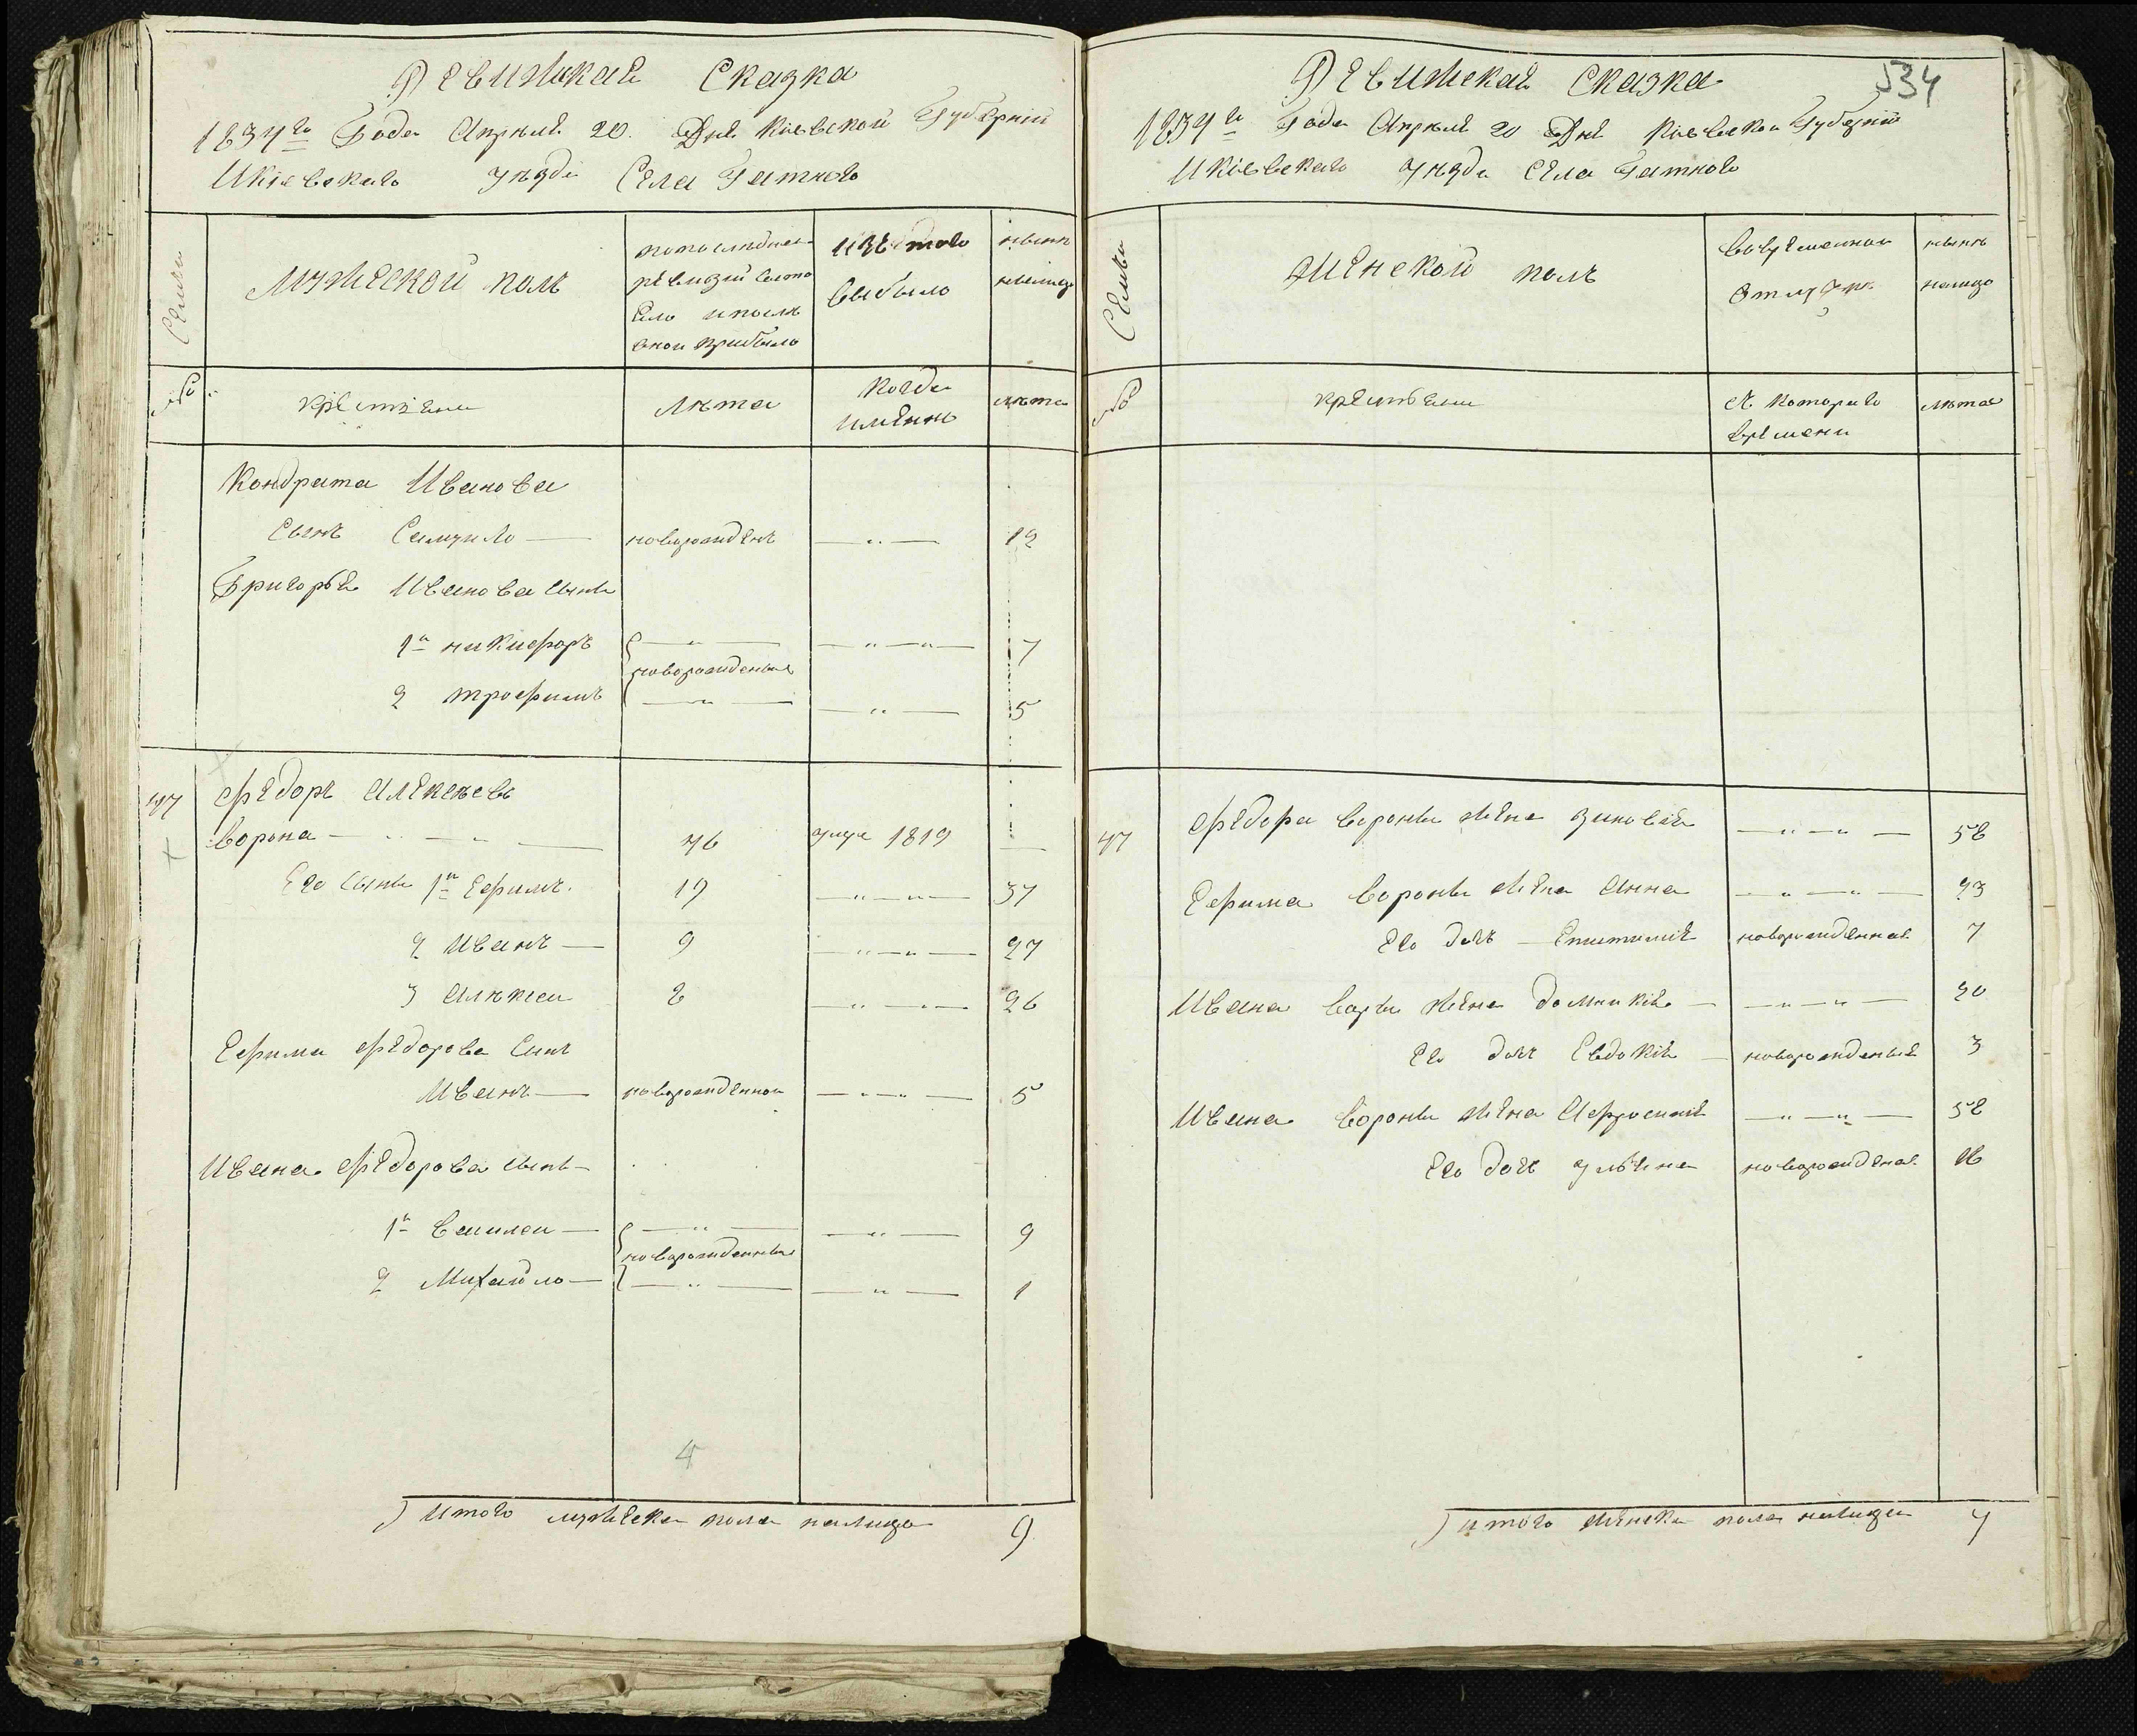 Ревижская Сказка
1834го Года Апреля 20. Дня Кіевской Губерніи
Икіевскаго уезда Села Гатного
Семьи
Мужеской полъ
попоследней
ревизіи состо
яло ипосле
оной прибыло
изъ того
выбыло
ныне
налицо
№
крестьяне
Лета
Когда
именно
лета
Кондрата Иванова
Сынъ Самуило
новорожденъ
12
Григорья Иванова сыны
1й никифоръ
7
новорожденые
2 трофимъ
5
47 Федоръ Алексеевъ
ворона
46
умре 1819
Его сыны 1й Ефимъ
19
37
2 Иванъ
9
27
3 Алексей
8
26
Ефима Федорова Сынъ
Иванъ
новорожденной
5
Ивана Федорова сыны
1й Василей
9
новорожденные
2 Михайло
1
4
Итого мужеска пола налицо
9
534
Ревижская Сказка
1834го Года Апреля 20 Дня Кіевской Губерніи
Икіевскаго уезда Села Гатного
Семьи
Женской полъ
вовременной
отлучке
ныне
налицо
№
крестьяне
съ котораго
времени
лета
47 Федора вороны жена зиновія
58
Ефима вороны жена Анна
23
Его дочь Епистимія
новорожденная
7
Ивана жена домникія
20
Его дочь Евдокія
новорожденыя
3
Ивана вороны жена Афросинія
38
Его дочь ульяна
новорожденая
16
итого женска пола налицо
7